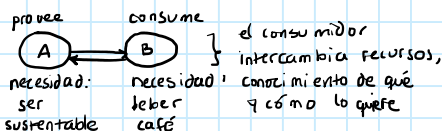 provee
consume
A
B
necesidad:
ser
sustentable
necesidad:
beber
café
el consumidor
intercambia recursos,
conocimiento de qué
y cómo lo quiere